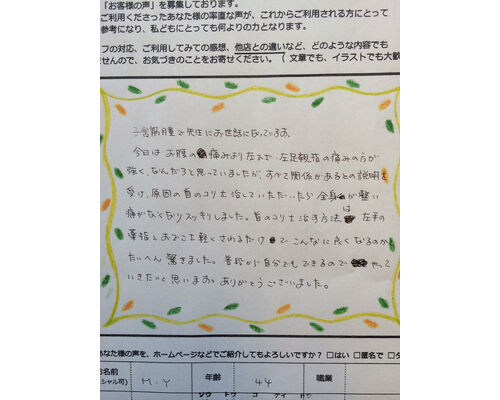 「お客様の声」を募集しております。
ご利用くださったあなた様の率直な声が、これからご利用される方にとって
参考になり、私どもにとっても何よりの力となります。
フの対応、ご利用してみての感想、他店との違いなど、どのような内容でも
ませんので、お気づきのことをお寄せください。(文章でも、イラストでも大歓
子宮筋腫で先生にお世話になっています。
今日はお腹の痛みより左ヒザ、左足親指の痛みの方が
強く、なんだろと思っていましたが、すべて関係があるとの説明を
受け、原因の首のコリを治していただいたら全身が整い
痛がなくなりスッキリしました。首のコリを治す方法は左手の
薬指とおでこを軽くさわるだけでこんなに良くなるのかと
たいへん驚きました。普段から自分でもできるのでやって
いきたいと思います。ありがとうございました。
あなた様の声を、ホームページなどでご紹介してもよろしいですか? □はい □匿名で □ダ
お名前 M.Y 年齢 44 職業
シャル可)